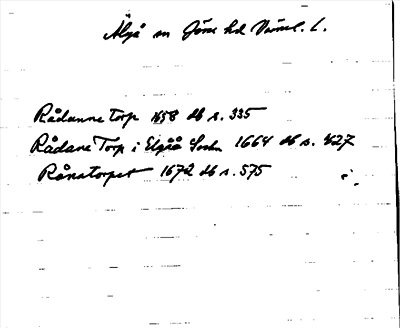 Älgå sn Jösse hd Värml. l.
Rådanne torp 1658 db s. 335
Rådane Torp i Elgåå Sochn 1664 db s. 427
Rånatorpet 1672 db s. 575